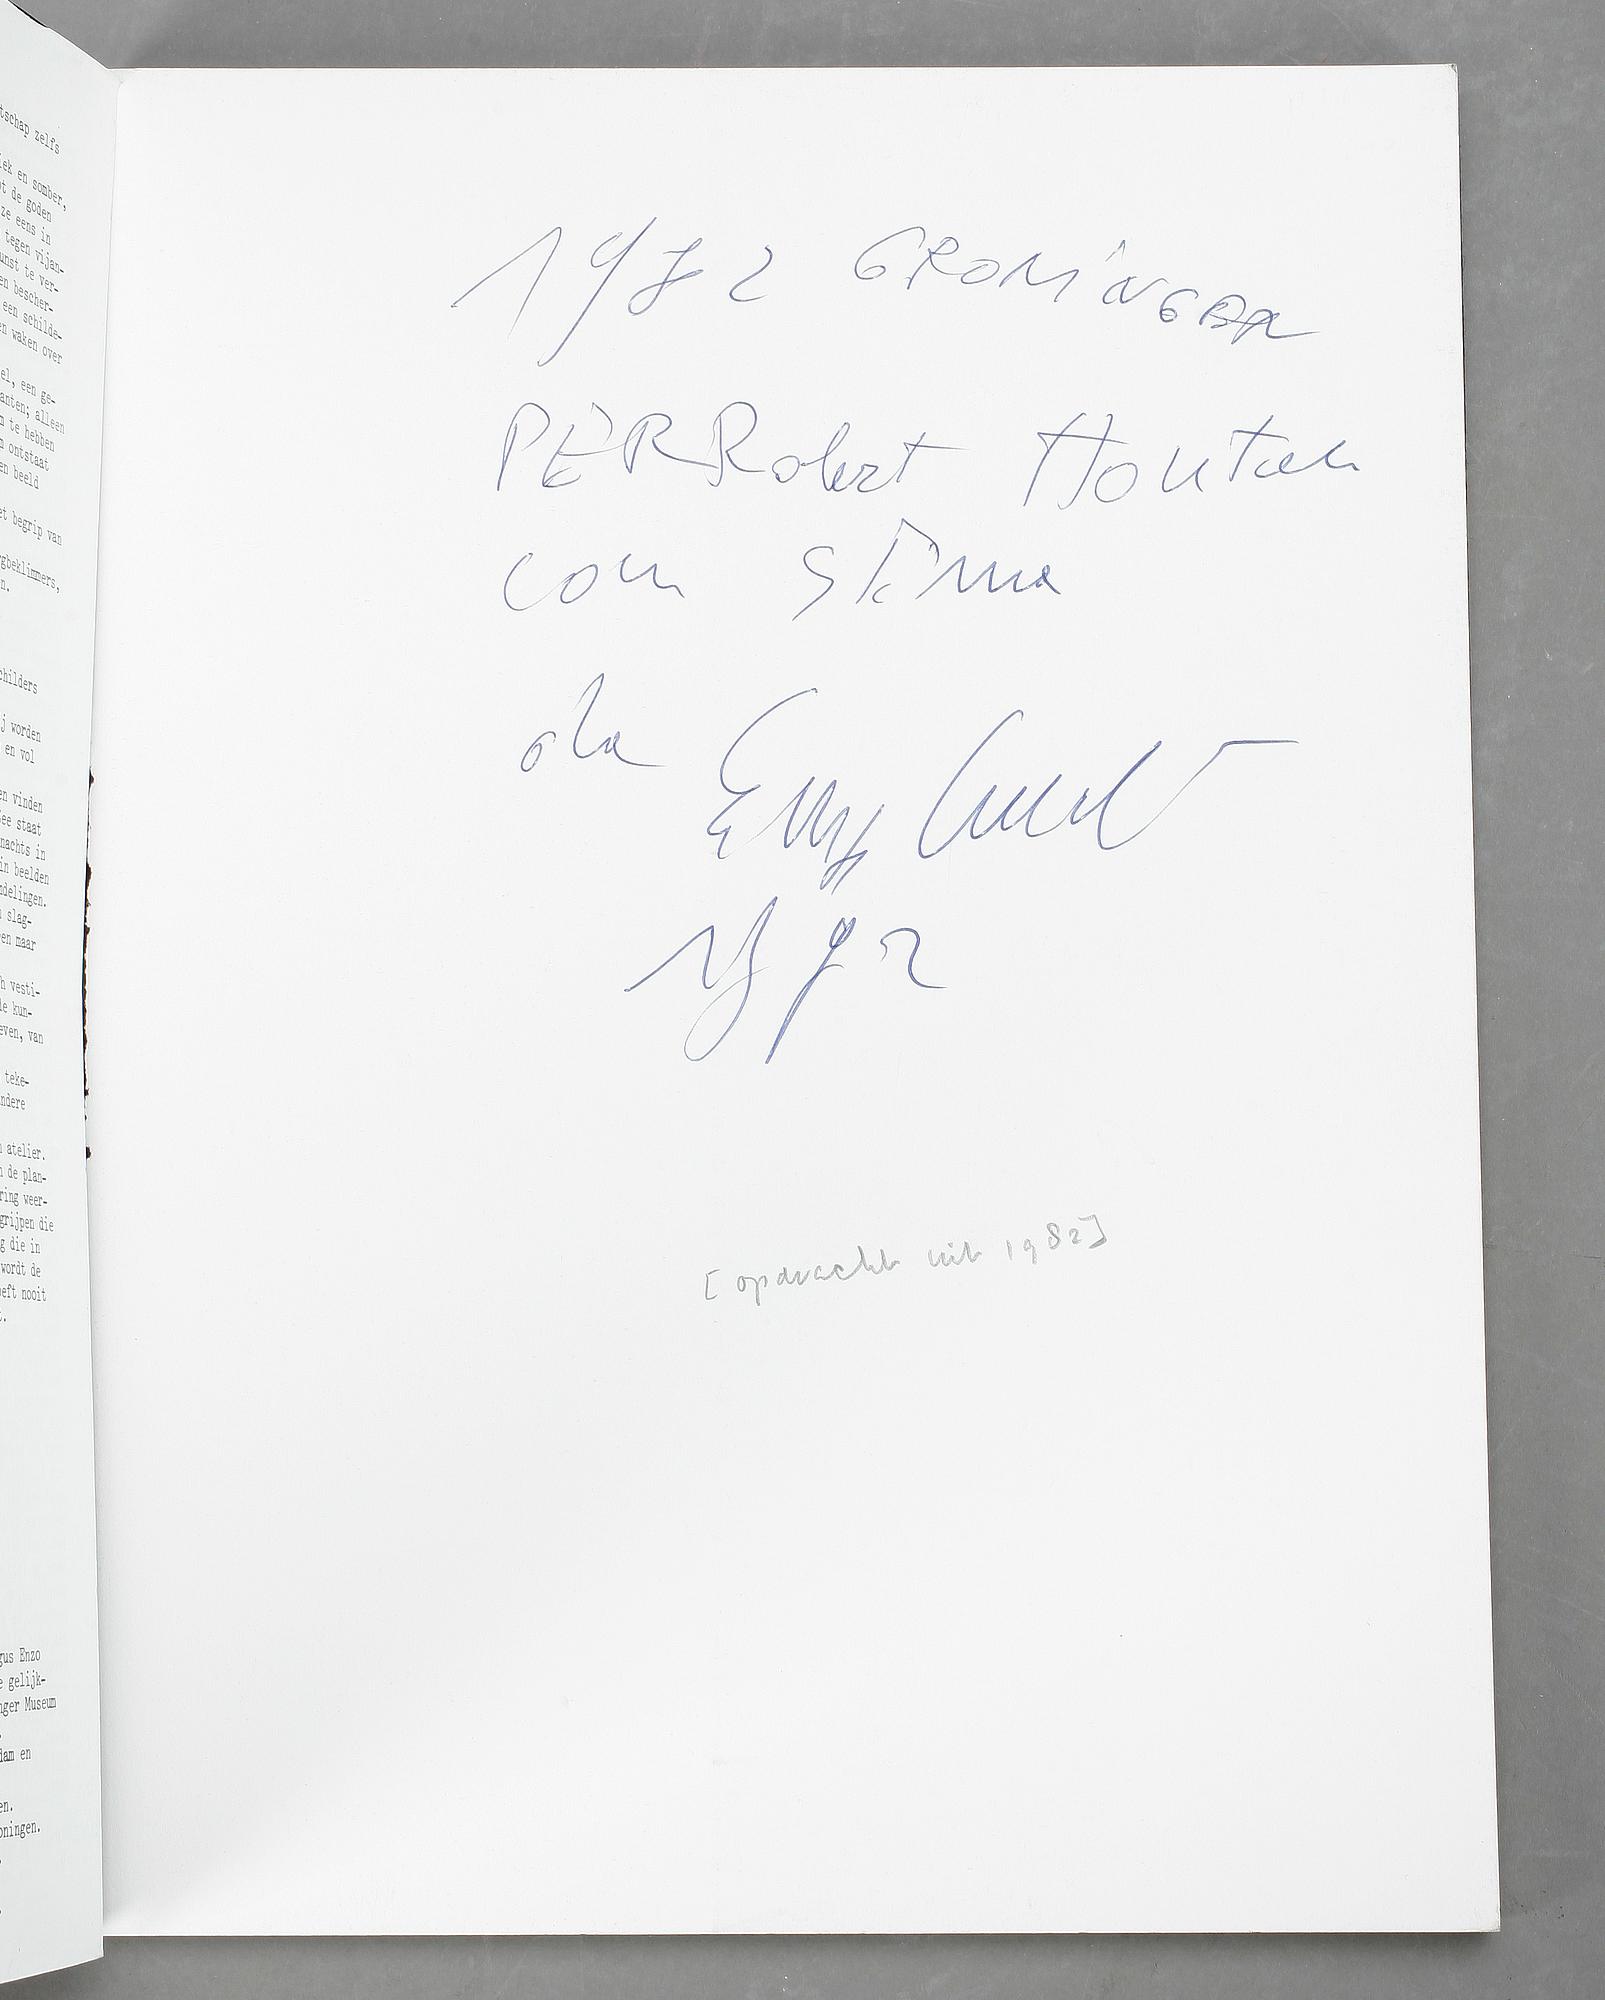 tschap zelfs
iek en somber,
ot de goden
ze eens in
tegen vijan-
unst te ver-
en bescher-
een schilde-
en waken over
el, een ge-
anten; alleen
m te hebben
n ontstaat
en beeld
et begrip van
rgbeklimmers,
n.
childers
j worden
en vol
en vinden
ee staat
nachts in
in beelden
ndelingen.
slag-
en maar
h vesti-
de kun-
even, van
teke-
ndere
n atelier.
n de plan-
ring weer-
grijpen die
g die in
wordt de
eeft nooit
t.
gus Enzo
e gelijk-
nger Museum
dam en
en.
oningen.
1982 GRONINGEN
PER Robert Houten
con STima
da Enzo Cucchi
1982
[opdracht uit 1982]